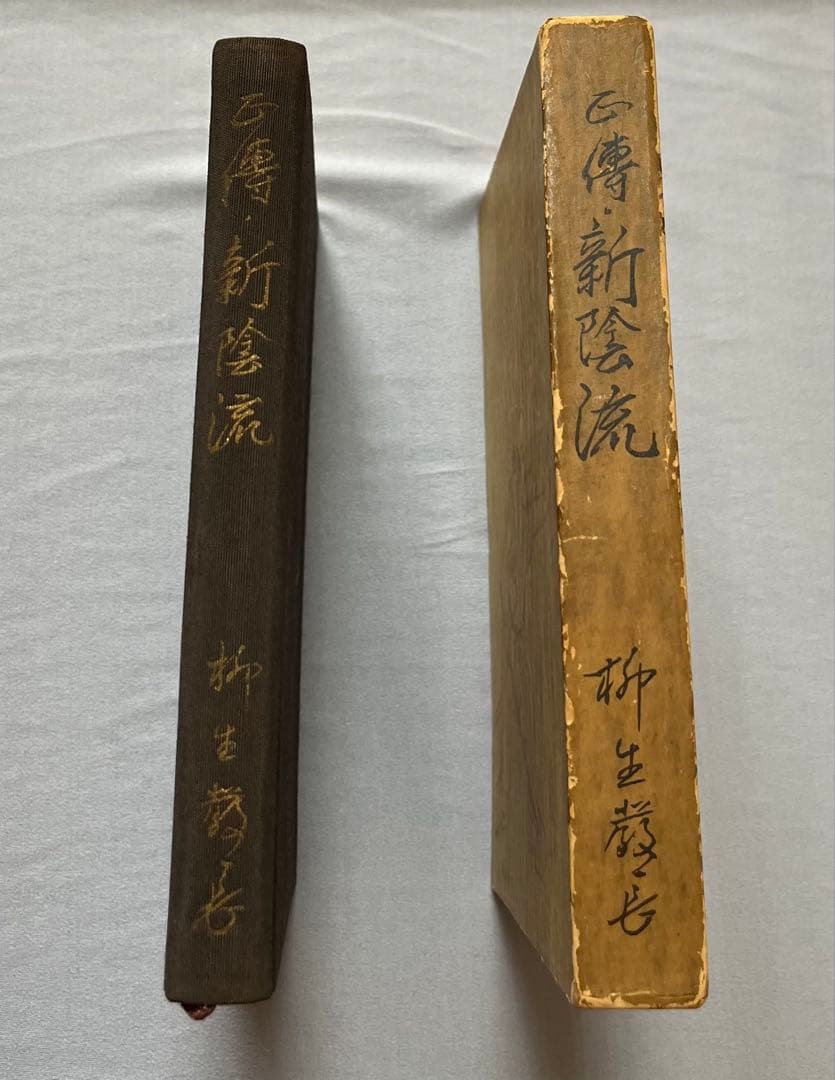 正傳・新陰流
柳生厳長
正傳・新陰流
柳生厳長